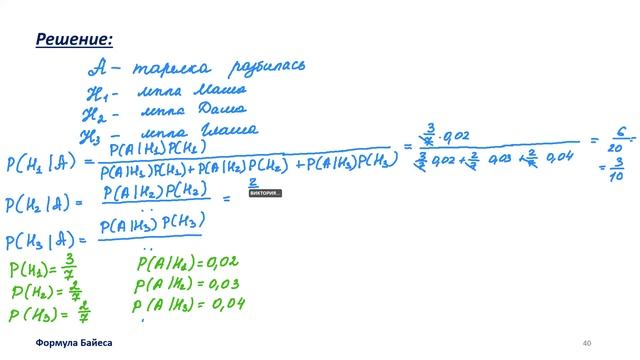 Решение:
A – тарелка разбилась
H₁ – мыла Маша
H₂ – мыла Даша
H₃ – мыла Глаша
P(H₁|A) = P(A|H₁)P(H₁) / P(A|H₁)P(H₁) + P(A|H₂)P(H₂) + P(A|H₃)P(H₃) = 3/7 · 0,02 / 3/7 0,02 + 2/7 0,03 + 2/7 0,04 = 6/20 = 3/10
P(H₂|A) = P(A|H₂)P(H₂) / .. = 2
ВИКТОРИЯ...
P(H₃|A) = P(A|H₃)P(H₃) / ..
P(H₁) = 3/7 P(A|H₁) = 0,02
P(H₂) = 2/7 P(A|H₂) = 0,03
P(H₃) = 2/7 P(A|H₃) = 0,04
Формула Байеса 40